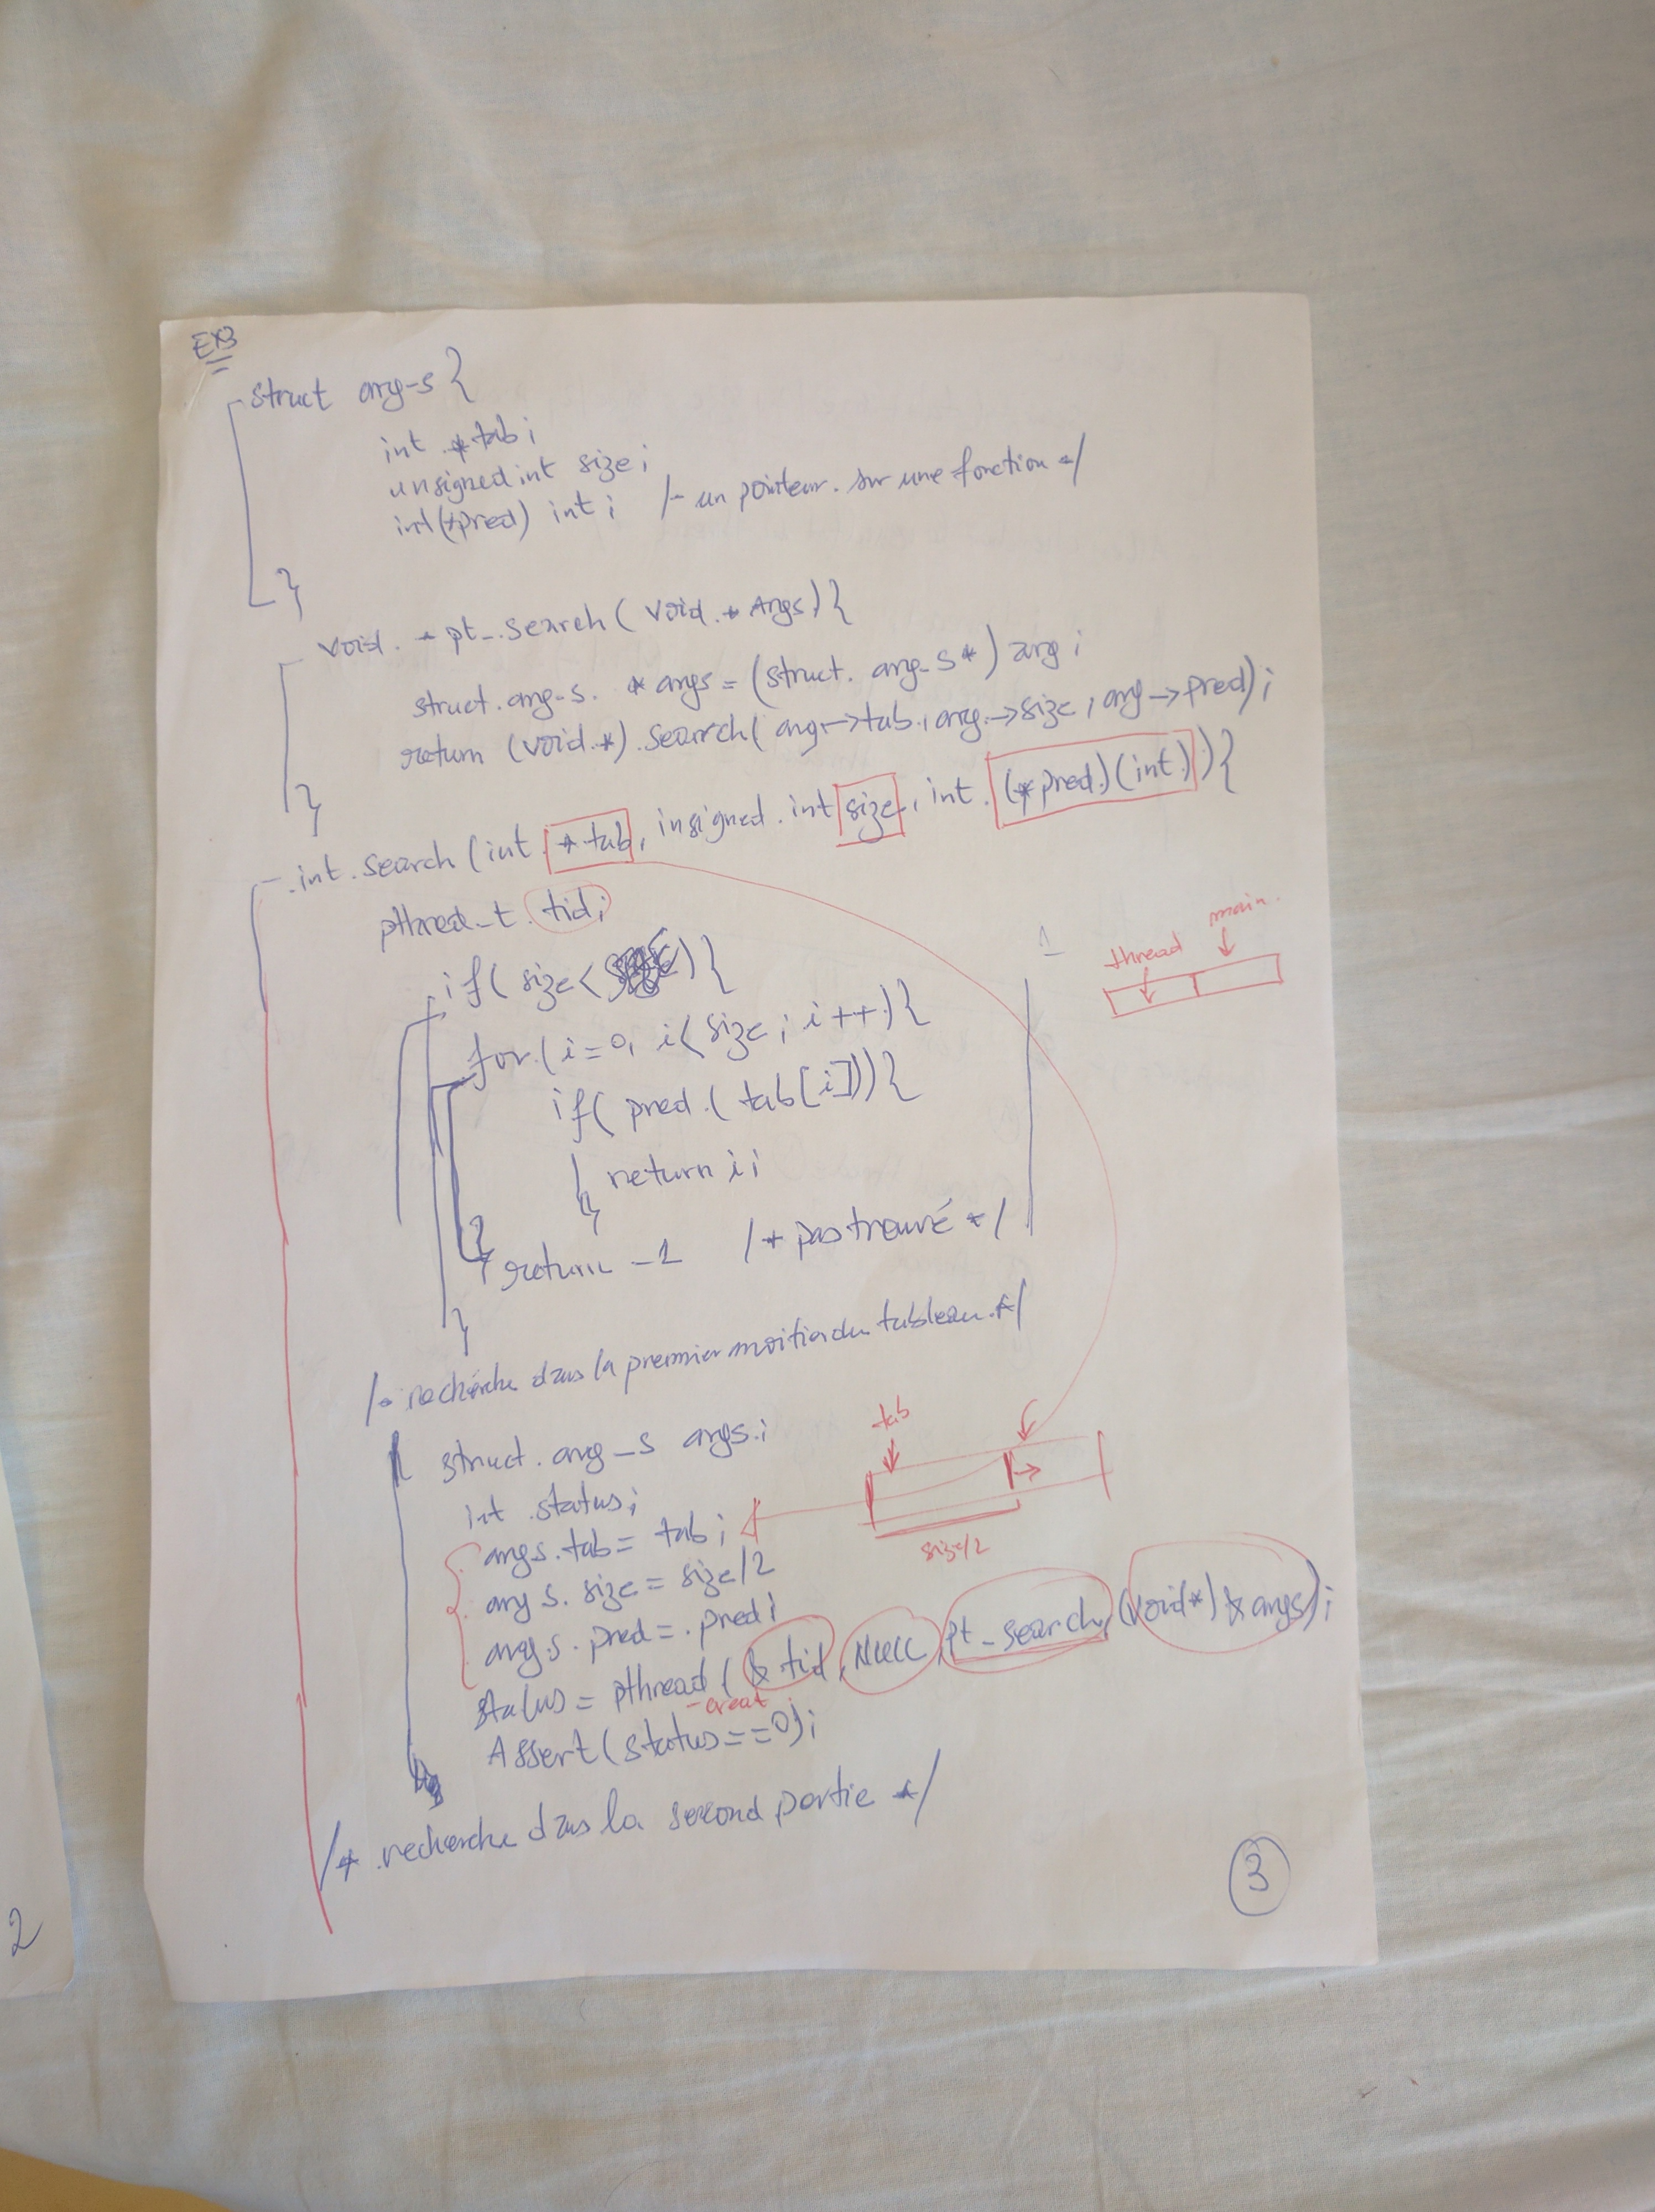 EX3
struct arg-s {
int *tab ;
unsigned int size ;
int (*pred) int ; /* un pointeur sur une fonction */
}
void * pt_search ( void * Args) {
struct arg-s * args = (struct arg-s*) arg ;
return (void *) search ( arg->tab, arg->size, arg->pred) ;
}
int search (int *tab, insigned int size, int (*pred)(int)) {
pthread_t tid ;
main
thread
if ( size < ) {
for ( i=0, i< size ; i++) {
if ( pred ( tab[i])) {
return i ;
}
}
return -1 /* pas trouvé */
}
/* recherche dans la premier moitier du tableau */
struct arg_s args ;
tab
int status ;
args.tab = tab ;
size/2
args.size = size/2
args.pred = pred ;
status = pthread ( & tid, NULL, pt_search, (void*) & args) ;
-creat
Assert (status==0) ;
/* recherche dans la second partie */
3
2